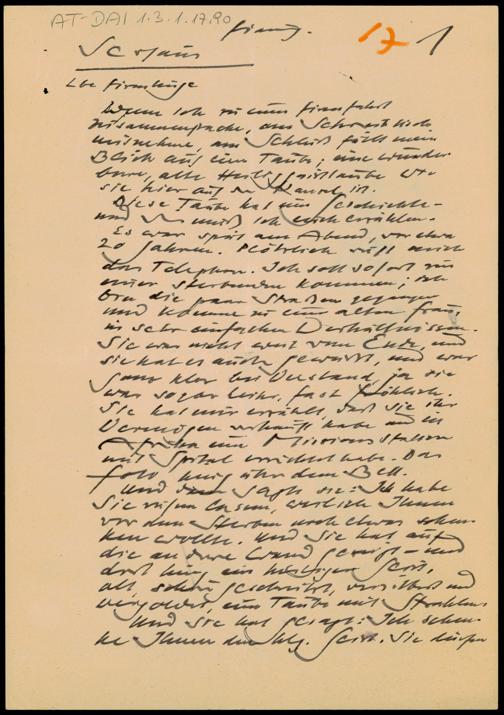 AT-DAI 1.3.1.17.90
Firmg.
17 1
St. Johann
Lbe Firmlinge
Wenn ich zu einer Firmfahrt
zusammenpacke, am Schreibtisch
mitnehme, am Schluß fällt mein
Blick auf eine Taube; eine wunder
bare, alte Heiliggeisttaube wie
sie hier auf der Kanzel ist.
Diese Taube hat eine Geschichte -
und die muß ich euch erzählen.
Es war spät am Abend, vor etwa
20 Jahren. Plötzlich ruft mich
das Telephon. Ich soll sofort zu
einer Sterbenden kommen; ich
bin die paar Straßen gegangen
und komme zu einer alten Frau,
in sehr einfachen Verhältnissen.
Sie war nicht weit vom Ende, und
sie hat es auch gewußt, und war
ganz klar bei Verstand, ja sie
war sogar heiter, fast fröhlich.
Sie hat mir erzählt, daß sie ihr
Vermögen verkauft habe und in
Afrika eine Missionsstation
mit Spital errichtet habe. Das
Foto hing über dem Bett.
Und dann sagte sie: Ich habe
Sie rufen lassen, weil ich Ihnen
vor dem Sterben noch etwas schen-
ken wollte. Und sie hat auf
die andere Wand gezeigt - und
dort hing ein heiliger Geist,
alt, schön geschnitzt, versilbert und
vergoldet, eine Taube mit Strahlen.
Und sie hat gesagt: Ich schen-
ke Ihnen den hlg. Geist. Sie dürfen